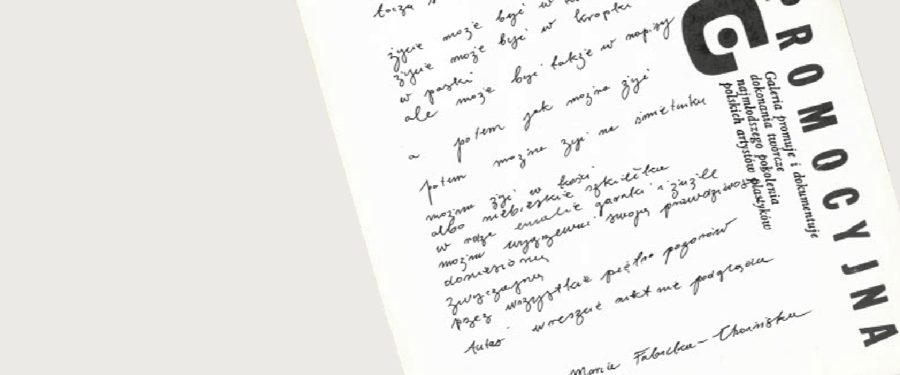 życie może być w
życie może być w kropki
w paski
ale może być także w napisy
a potem jak można żyć
potem można żyć na śmietniku
można żyć w
albo niebieskie szkiełka
w róże emalie garnki i
można swoją prawdziwość
doniesioną
zwyczajną
przez wszystkie piętra pozorów
tutaj wreszcie nikt nie podgląda
Maria
G
PROMOCYJNA
Galeria promuje i dokumentuje
dokonania twórcze
najmłodszego pokolenia
polskich artystów plastyków